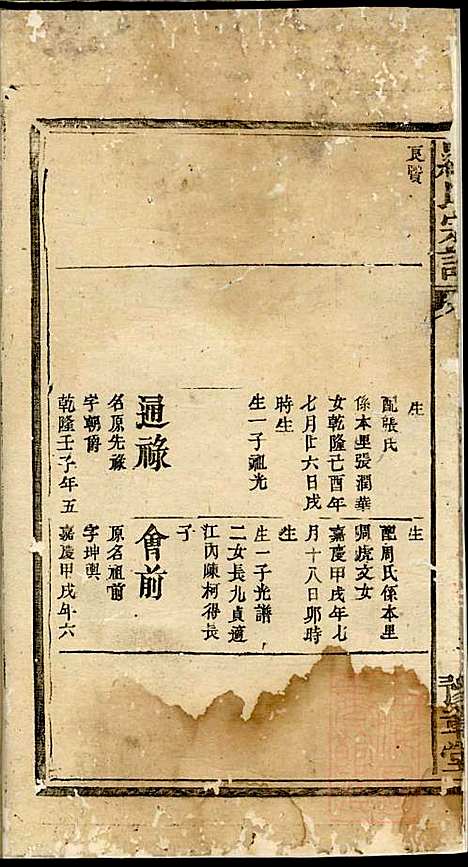 羅氏宗譜
豫章堂
良賢
生
配張氏
係本里張潤華
女乾隆己酉年
七月廿六日戌
時生
生一子祖光
通祿
名原先祿
字朝爵
乾隆壬子年五
生
配周氏係本里
珮虎文女
嘉慶甲戌年七
月十八日卯時
生
生一子光譜
二女長九貞適
江內陳柯得長
子
會前
原名祖前
字坤輿
嘉慶甲戌年六